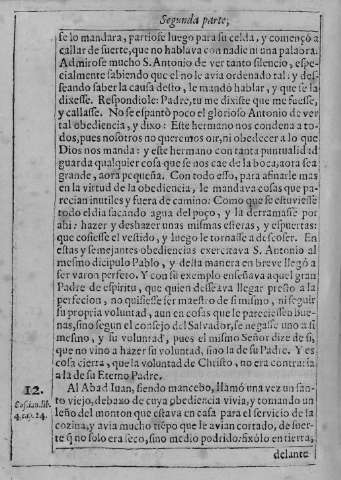 Segunda parte,
se lo mandara, partiose luego para su celda, y començò a
callar de suerte, que no hablava con nadie ni una palabra.
Admirose mucho S. Antonio de ver tanto silencio, espe-
cialmente sabiendo que el no le avia ordenado tal: y des-
seando saber la causa desto, le mandó hablar, y que se la
dixesse. Respondiole: Padre, tu me dixiste que me fuesse,
y callasse. No se espantò poco el glorioso Antonio de ver
tal obediencia, y dixo: Este hermano nos condena a to-
dos, pues nosotros no queremos oir, ni obedecer a lo que
Dios nos manda: y este hermano con tanta puntualidad
guarda qualquier cosa que se nos cae de la boca, aora sea
grande, aora pequeña. Con todo esso, para afinarle mas
en la virtud de la obediencia, le mandava cosas que pa-
recian inutiles y fuera de camino: Como que se estuviesse
todo el dia sacando agua del poço, y la derramasse por
ahi: hazer y deshazer unas mismas esteras, y espuertas:
que cosiesse el vestido, y luego le tornasse a descoser. En
estas y semejantes obediencias exercitava S. Antonio al
mesmo dicipulo Pablo, y desta manera en breve llegó a
ser varon perfeto. Y con su exemplo enseñava aquel gran
Padre de espiritu, que quien desseava llegar presto a la
perfecion, no quisiesse ser maestro de si mismo, ni seguir
su propria voluntad, aun en cosas que le pareciessen bue-
nas, sino segun el consejo del Salvador, se negasse uno a si
mesmo, y su voluntad, pues el mismo Señor dize de si,
que no vino a hazer su voluntad, sino la de su Padre. Y es
cosa cierta, que la voluntad de Christo, no era contraria
a la de su Eterno Padre.
12.
Al Abad Iuan, siendo mancebo, llamó una vez un san-
Cassian. lib.
to viejo, debaxo de cuya obediencia vivia, y tomando un
4. cap. 24.
leño del monton que estava en casa para el servicio de la
cozina, y avia mucho tiẽpo que le avian cortado, de suer-
te q̃ no solo era seco, sino medio podrido: fixòlo en tierra,
delante